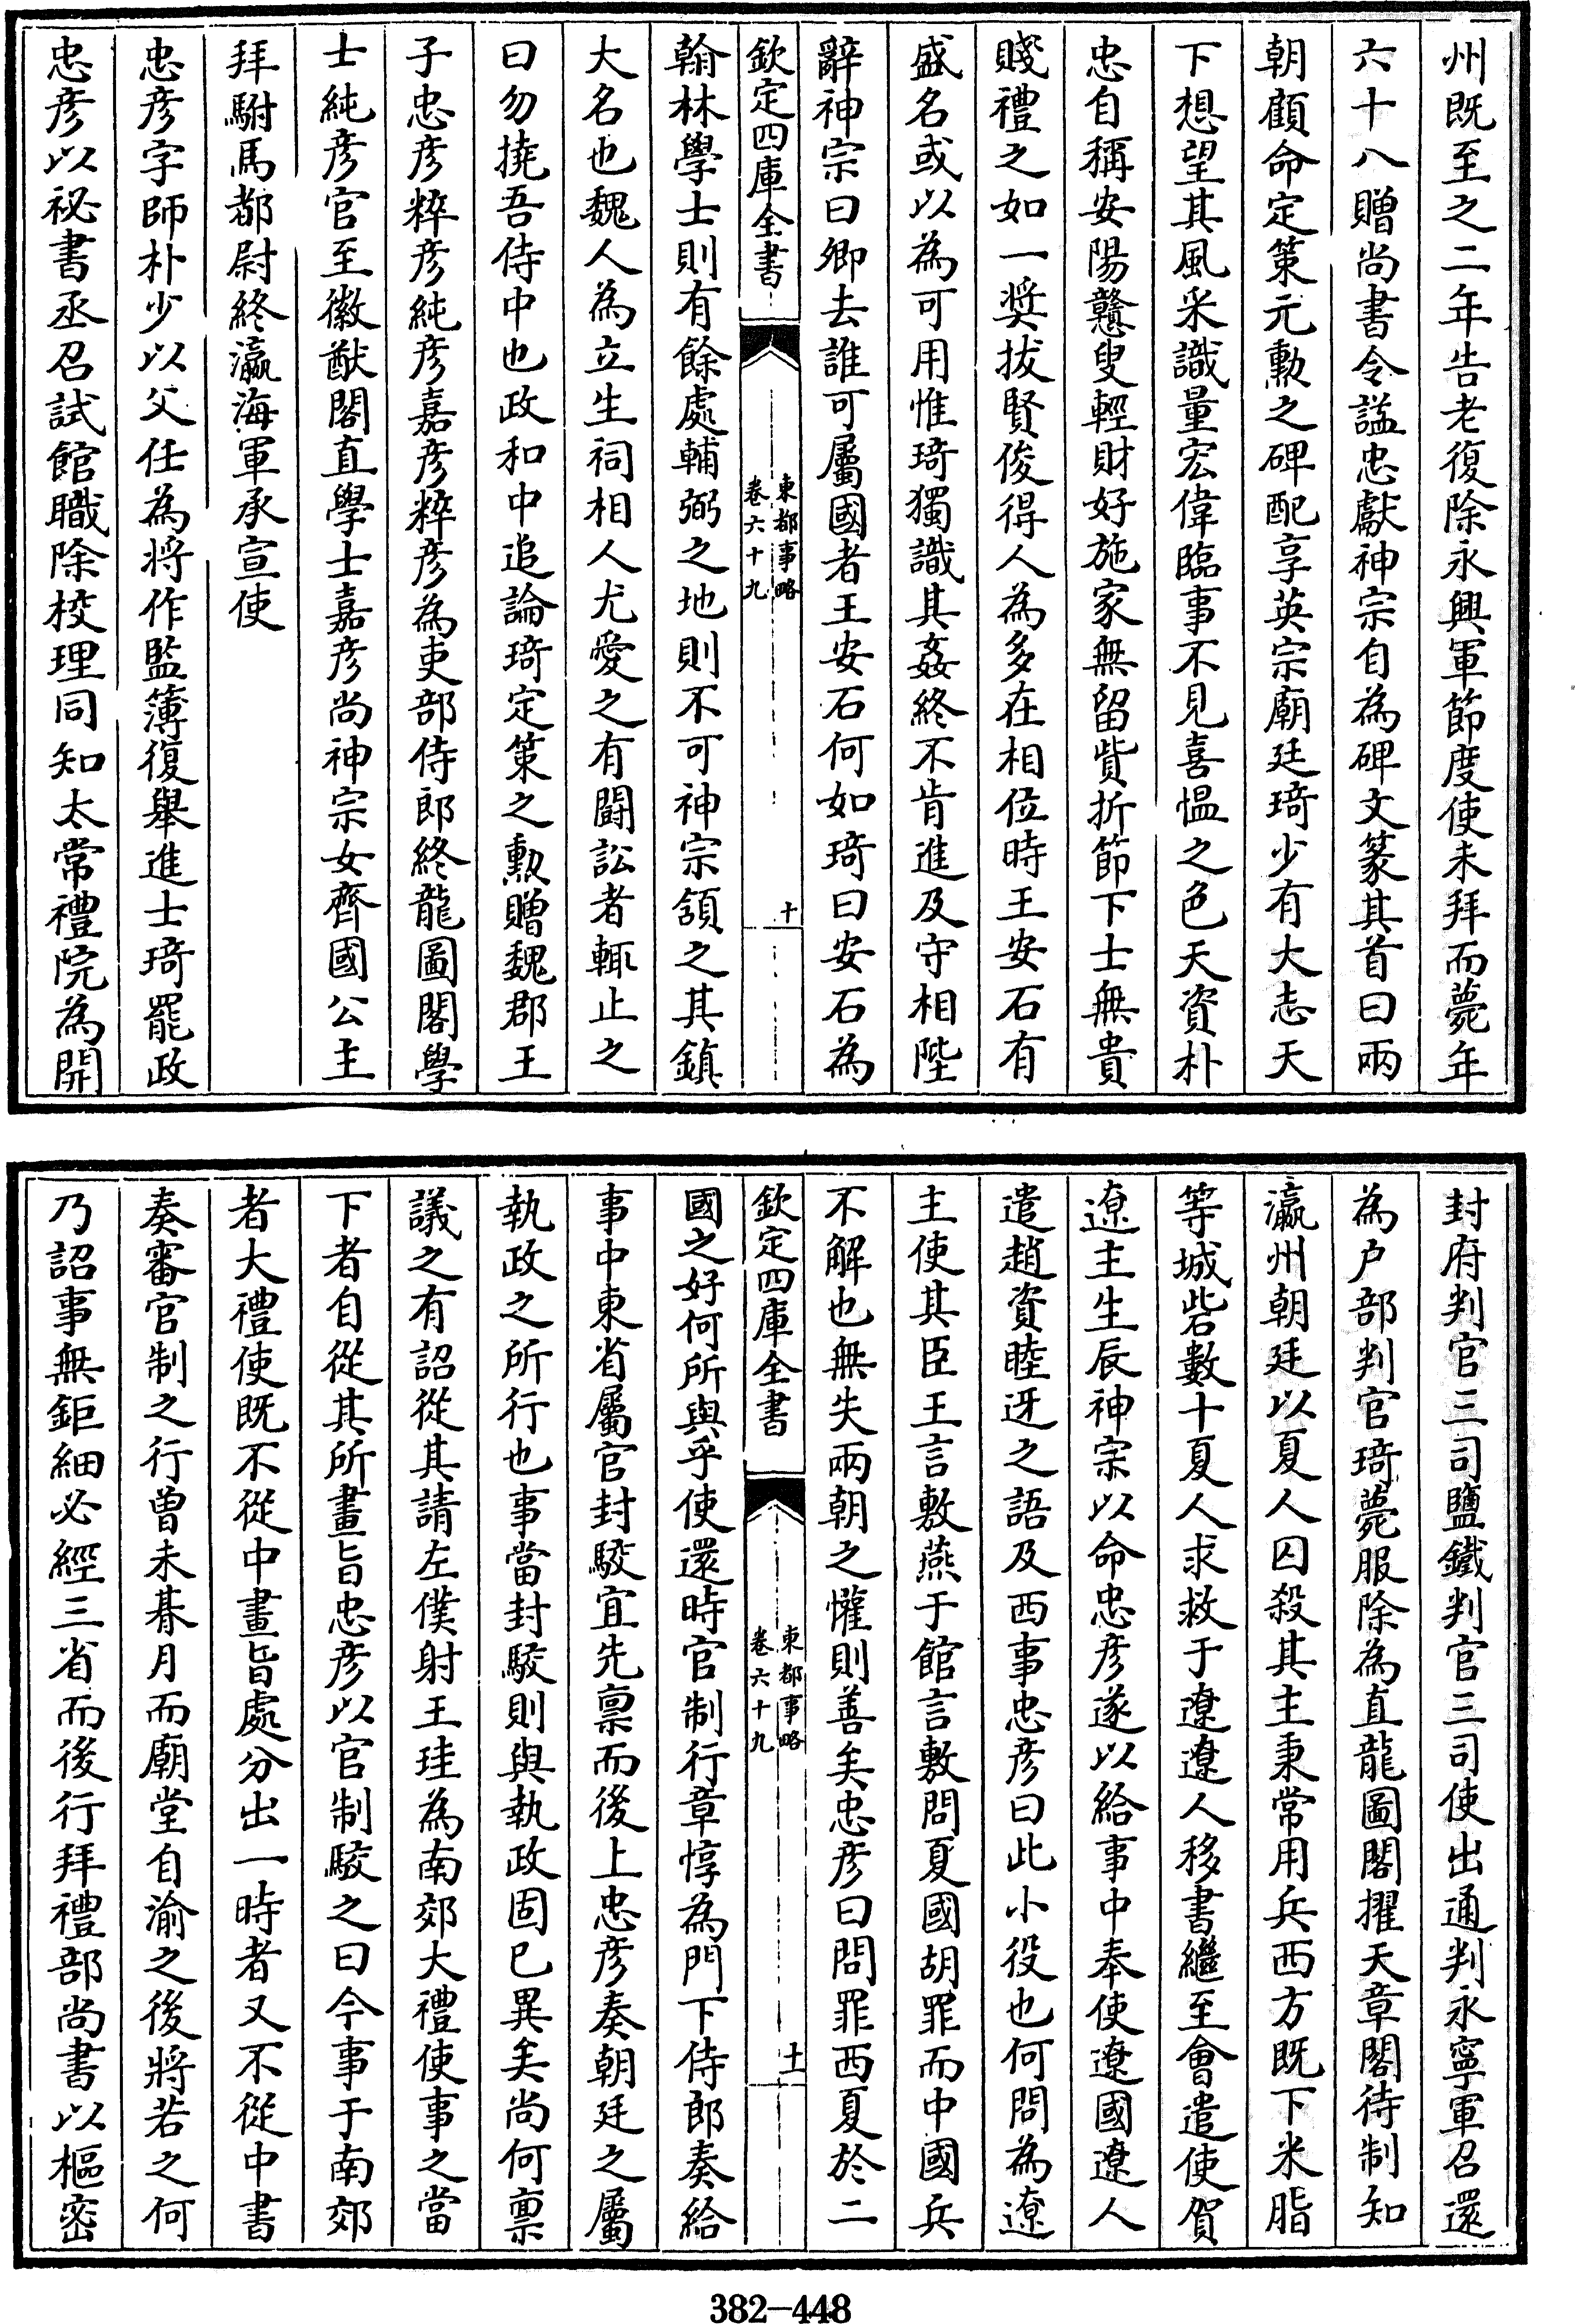 州既至之二年告老復除永興軍節度使未拜而薨年
六十八贈尚書令謚忠獻神宗自為碑文篆其首曰兩
朝顧命定策元勲之碑配享英宗廟廷琦少有大志天
下想望其風采識量宏偉臨事不見喜愠之色天資朴
忠自稱安陽戇叟輕財好施家無留貲折節下士無貴
賤禮之如一奨拔賢俊得人為多在相位時王安石有
盛名或以為可用惟琦獨識其姦終不肯進及守相陛
辭神宗曰卿去誰可屬國者王安石何如琦曰安石為
欽定四庫全書
東都事略
卷六十九
十
翰林學士則有餘處輔弼之地則不可神宗頷之其鎮
大名也魏人為立生祠相人尤愛之有鬭訟者輒止之
曰勿撓吾侍中也政和中追論琦定策之勲贈魏郡王
子忠彦粹彦純彦嘉彦粹彦為吏部侍郎終龍圖閣學
士純彦官至徽猷閣直學士嘉彦尚神宗女齊國公主
拜駙馬都尉終瀛海軍承宣使
忠彦字師朴少以父任為將作監簿復舉進士琦罷政
忠彦以祕書丞召試館職除校理同知太常禮院為開
封府判官三司鹽鐵判官三司使出通判永寧軍召還
為户部判官琦薨服除為直龍圖閣擢天章閣待制知
瀛州朝廷以夏人囚殺其主秉常用兵西方既下米脂
等城砦數十夏人求救于遼遼人移書繼至會遣使賀
遼主生辰神宗以命忠彦遂以給事中奉使遼國遼人
遣趙資睦迓之語及西事忠彦曰此小役也何問為遼
主使其臣王言敷燕于館言敷問夏國胡罪而中國兵
不解也無失兩朝之懽則善矣忠彦曰問罪西夏於二
欽定四庫全書
東都事略
卷六十九
十一
國之好何所與乎使還時官制行章惇為門下侍郎奏給
事中東省屬官封駮宜先稟而後上忠彦奏朝廷之屬
執政之所行也事當封駮則與執政固已異矣尚何稟
議之有詔從其請左僕射王珪為南郊大禮使事之當
下者自從其所畫旨忠彦以官制駮之曰今事于南郊
者大禮使既不從中畫旨處分出一時者又不從中書
奏審官制之行曾未朞月而廟堂自渝之後將若之何
乃詔事無鉅細必經三省而後行拜禮部尚書以樞密
382-448